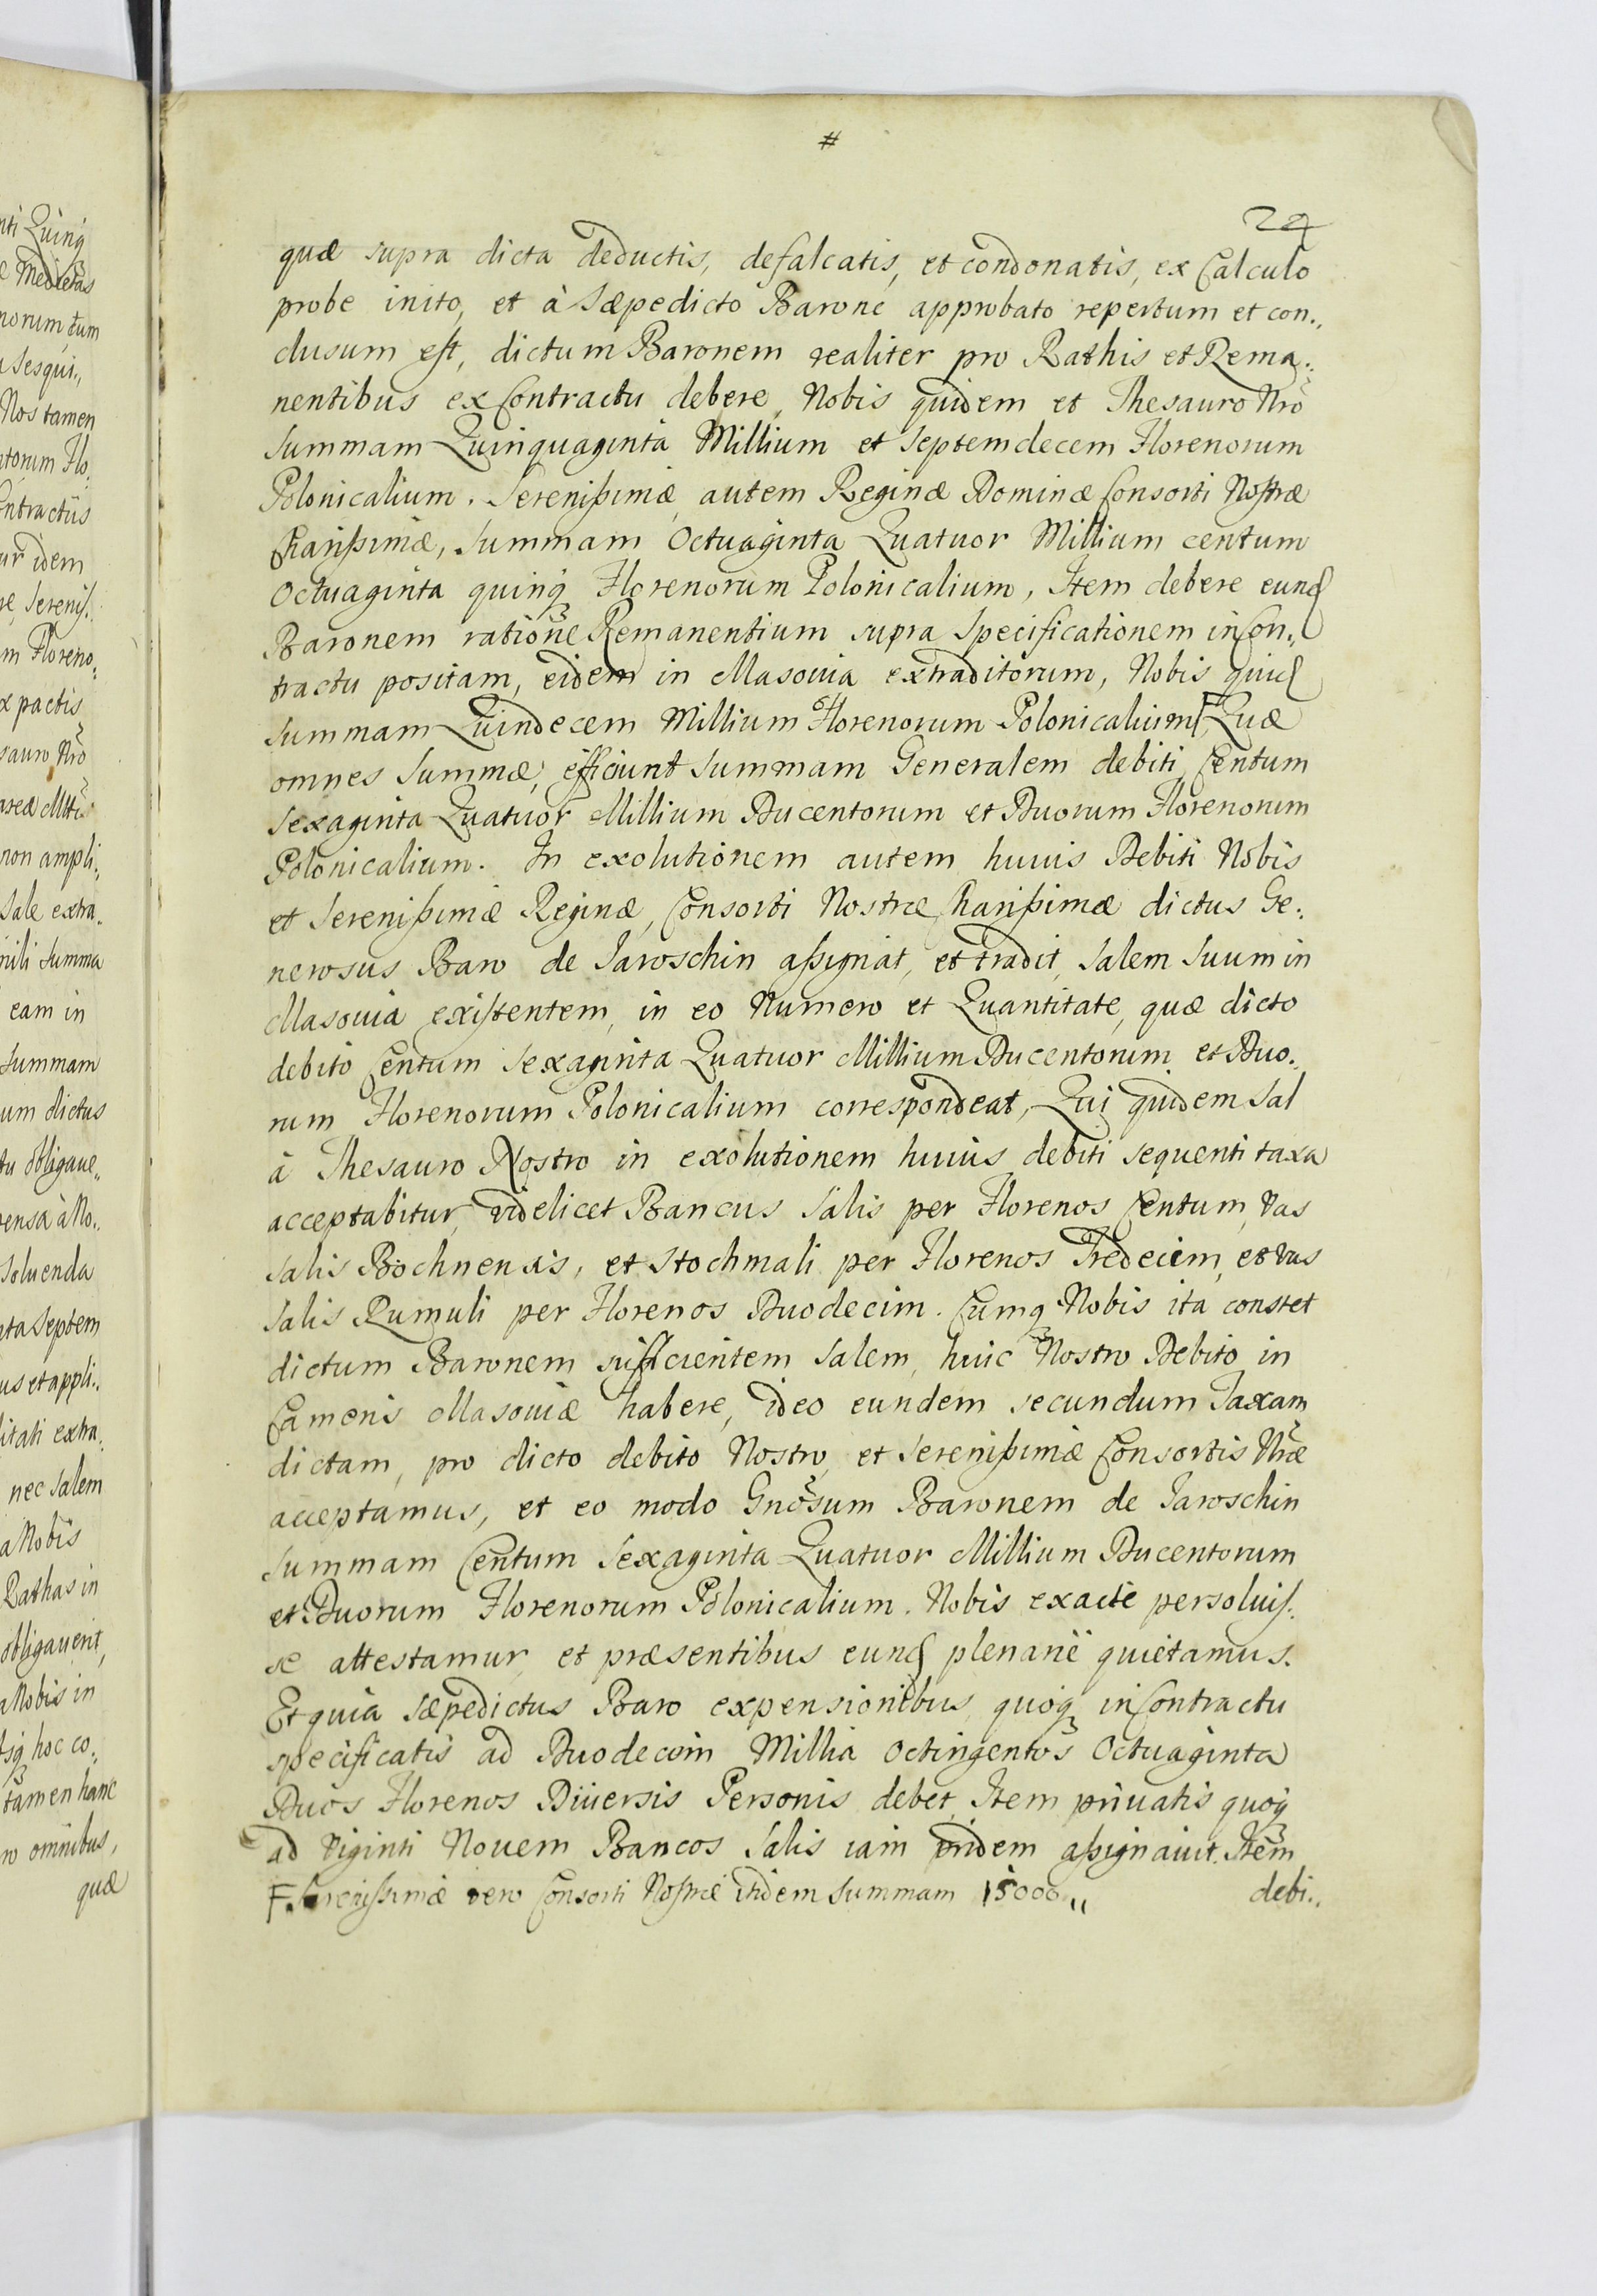 #
24
quæ supra dicta deductis, defalcatis, et condonatis, ex Calculo
probe inito, et à Sæpedicto Barone approbato repertum et con.,
clusum est, dictum Baronem realiter pro Rathis et Rema.,
nentibus ex Contractu debere, Nobis quidem et Thesauro Nrõ
summam Quinquaginta Millium et Septemdecem Florenorum
Polonicalium. Serenißimæ autem Reginæ Dominæ Consorti Nostræ
Charißimæ, Summam Octuaginta Quatuor Millium centum
Octuaginta quinqꝫ Florenorum Polonicalium, Item debere eund
Baronem ratione Remanentium supra Specificationem in Con.,
tractu positam, eidem in Masouia extraditorum, Nobis quid
summam Quindecem Millium Florenorum Polonicalium F Quæ
omnes Summæ, efficiunt summam Generalem debiti Centum
Sexaginta Quatuor Millium Ducentorum et Duorum Florenorum
Polonicalium. In exolutionem autem huius Debiti Nobis
et Serenißimæ Reginæ, Consorti Nostræ Charißimæ dictus Ge.,
nerosus Baro de Jaroschin aßignat, et tradit, Salem Suum in
Masouia existentem, in eo Numero et Quantitate, quæ dicto
debito Centum Sexaginta Quatuor Millium Ducentorum et Duo.,
rum Florenorum Polonicalium correspondeat, Qui quidem Sal
à Thesauro Nostro in exolutionem huius debiti sequenti taxa
acceptabitur, videlicet Bancus Salis per Florenos Centum, Vas
Salis Bochnensis, et Stochmali per Florenos Tredecim, et vas
Salis Rumuli per Florenos Duodecim. Cumqꝫ Nobis ita constet
dictum Baronem sufficientem Salem, huic Nostro Debito in
Cameris Masouiæ habere, ideo eundem secundum Taxam
dictam, pro dicto debito Nostro, et Serenißimæ Consortis Nræ̃
acceptamus, et eo modo Gnõsum Baronem de Jaroschin
summam Centum Sexaginta Quatuor Millium Ducentorum
et Duorum Florenorum Polonicalium. Nobis exacte persoluis.,
se attestamur, et præsentibus eund plenariè quietamus.
Et quia sæpedictus Baro expensionibus quoqꝫ in Contractu
specificatis ad Duodecim Millia Octingentos Octuaginta
Duos Florenos Diuersis Personis debet, Item priuatis quoqꝫ
ad Viginti Nouem Bancos Salis iam pridem aßignauit. Item
F. Serenissimæ vero Consorti Nostræ itidem summam 15000,,
debi.,